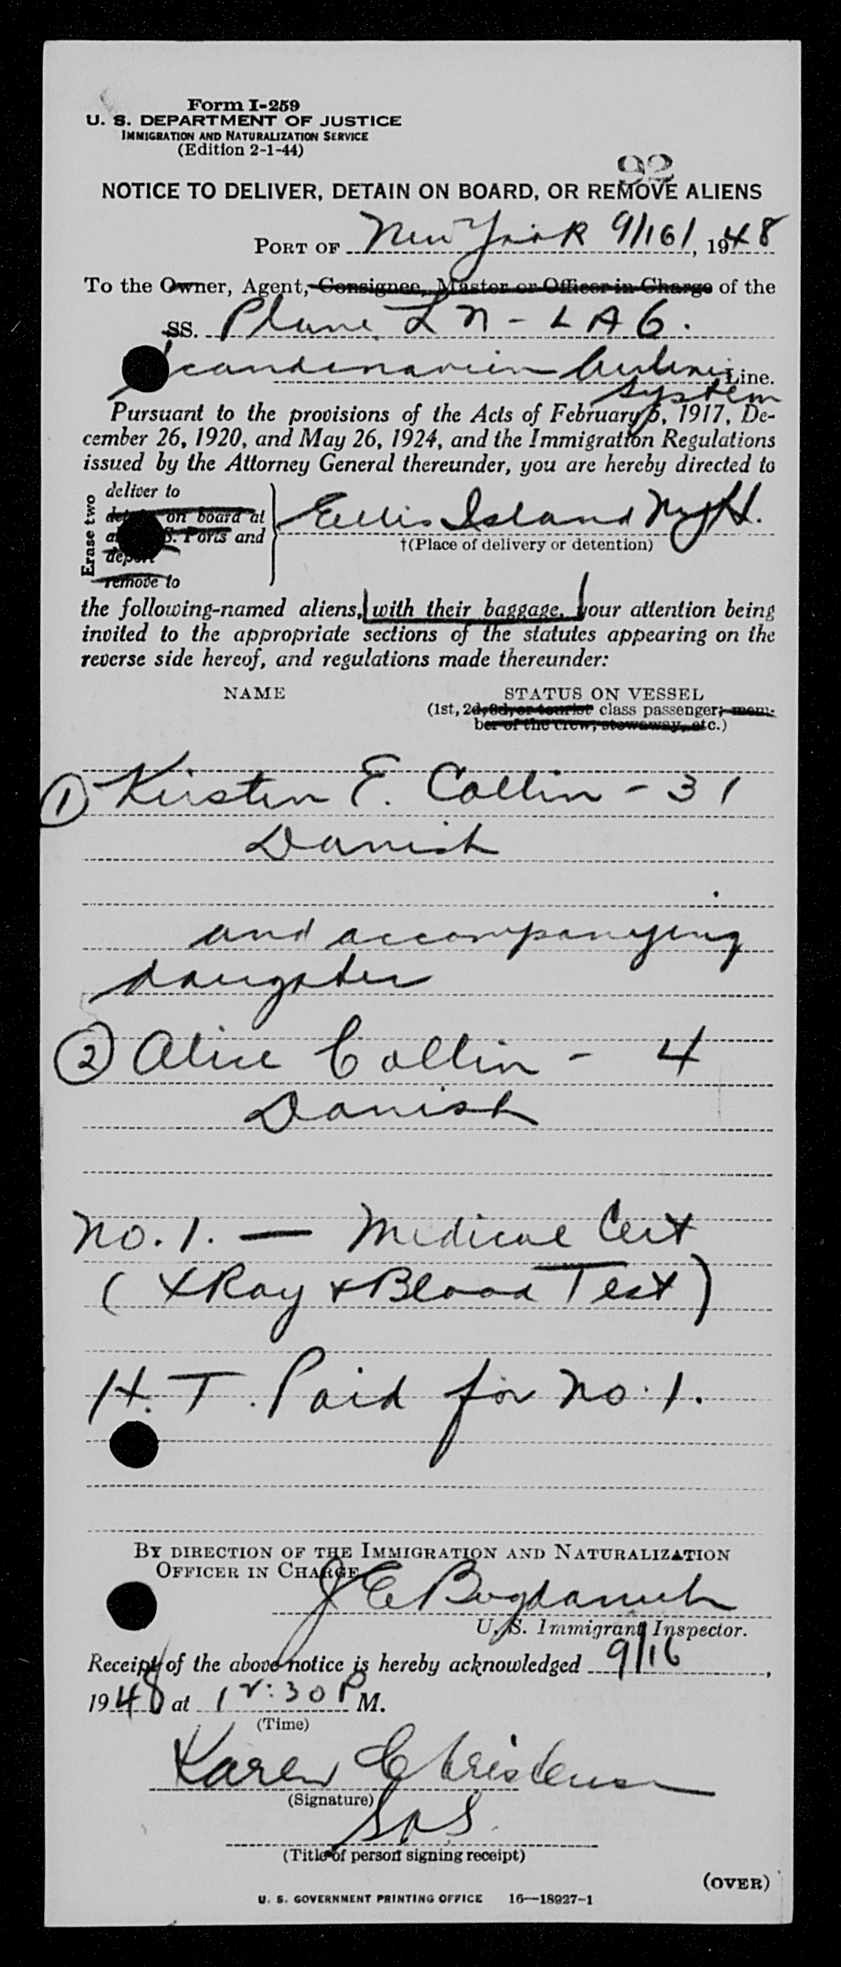 Form I-259
U. S. DEPARTMENT OF JUSTICE
IMMIGRATION AND NATURALIZATION SERVICE
(Edition 2-1-44)
92
NOTICE TO DELIVER, DETAIN ON BOARD, OR REMOVE ALIENS
PORT OF New York 9/16/, 1948
To the Owner, Agent, Consignee, Master or Officer in Charge of the
SS. Plane LN-LAG.
Scandinavian Airlines Line.
System
Pursuant to the provisions of the Acts of February 5, 1917, De-
cember 26, 1920, and May 26, 1924, and the Immigration Regulations
issued by the Attorney General thereunder, you are hereby directed to
Erase two
deliver to
on board at
S. Ports and
remove to
Ellis Island
†(Place of delivery or detention)
the following-named aliens, with their baggage, your attention being
invited to the appropriate sections of the statutes appearing on the
reverse side hereof, and regulations made thereunder:
NAME STATUS ON VESSEL
(1st, 2d, 3d, or tourist class passenger; mem-
ber of the crew, stowaway, etc.)
1 Kirsten E. Collin - 31
Danish
and accompanying
daughter
2 Alice Collin - 4
Danish
No. 1. — Medical Cert
(XRay + Blood Test)
H. T. Paid for No. 1.
BY DIRECTION OF THE IMMIGRATION AND NATURALIZATION
OFFICER IN CHARGE
J E Bogdanich
U. S. Immigrant Inspector.
Receipt of the above notice is hereby acknowledged 9/16,
1948 at 12:30 P M.
(Time)
Karen Christensen
(Signature)
SAS.
(Title of person signing receipt)
(OVER)
U. S. GOVERNMENT PRINTING OFFICE 16—18927-1